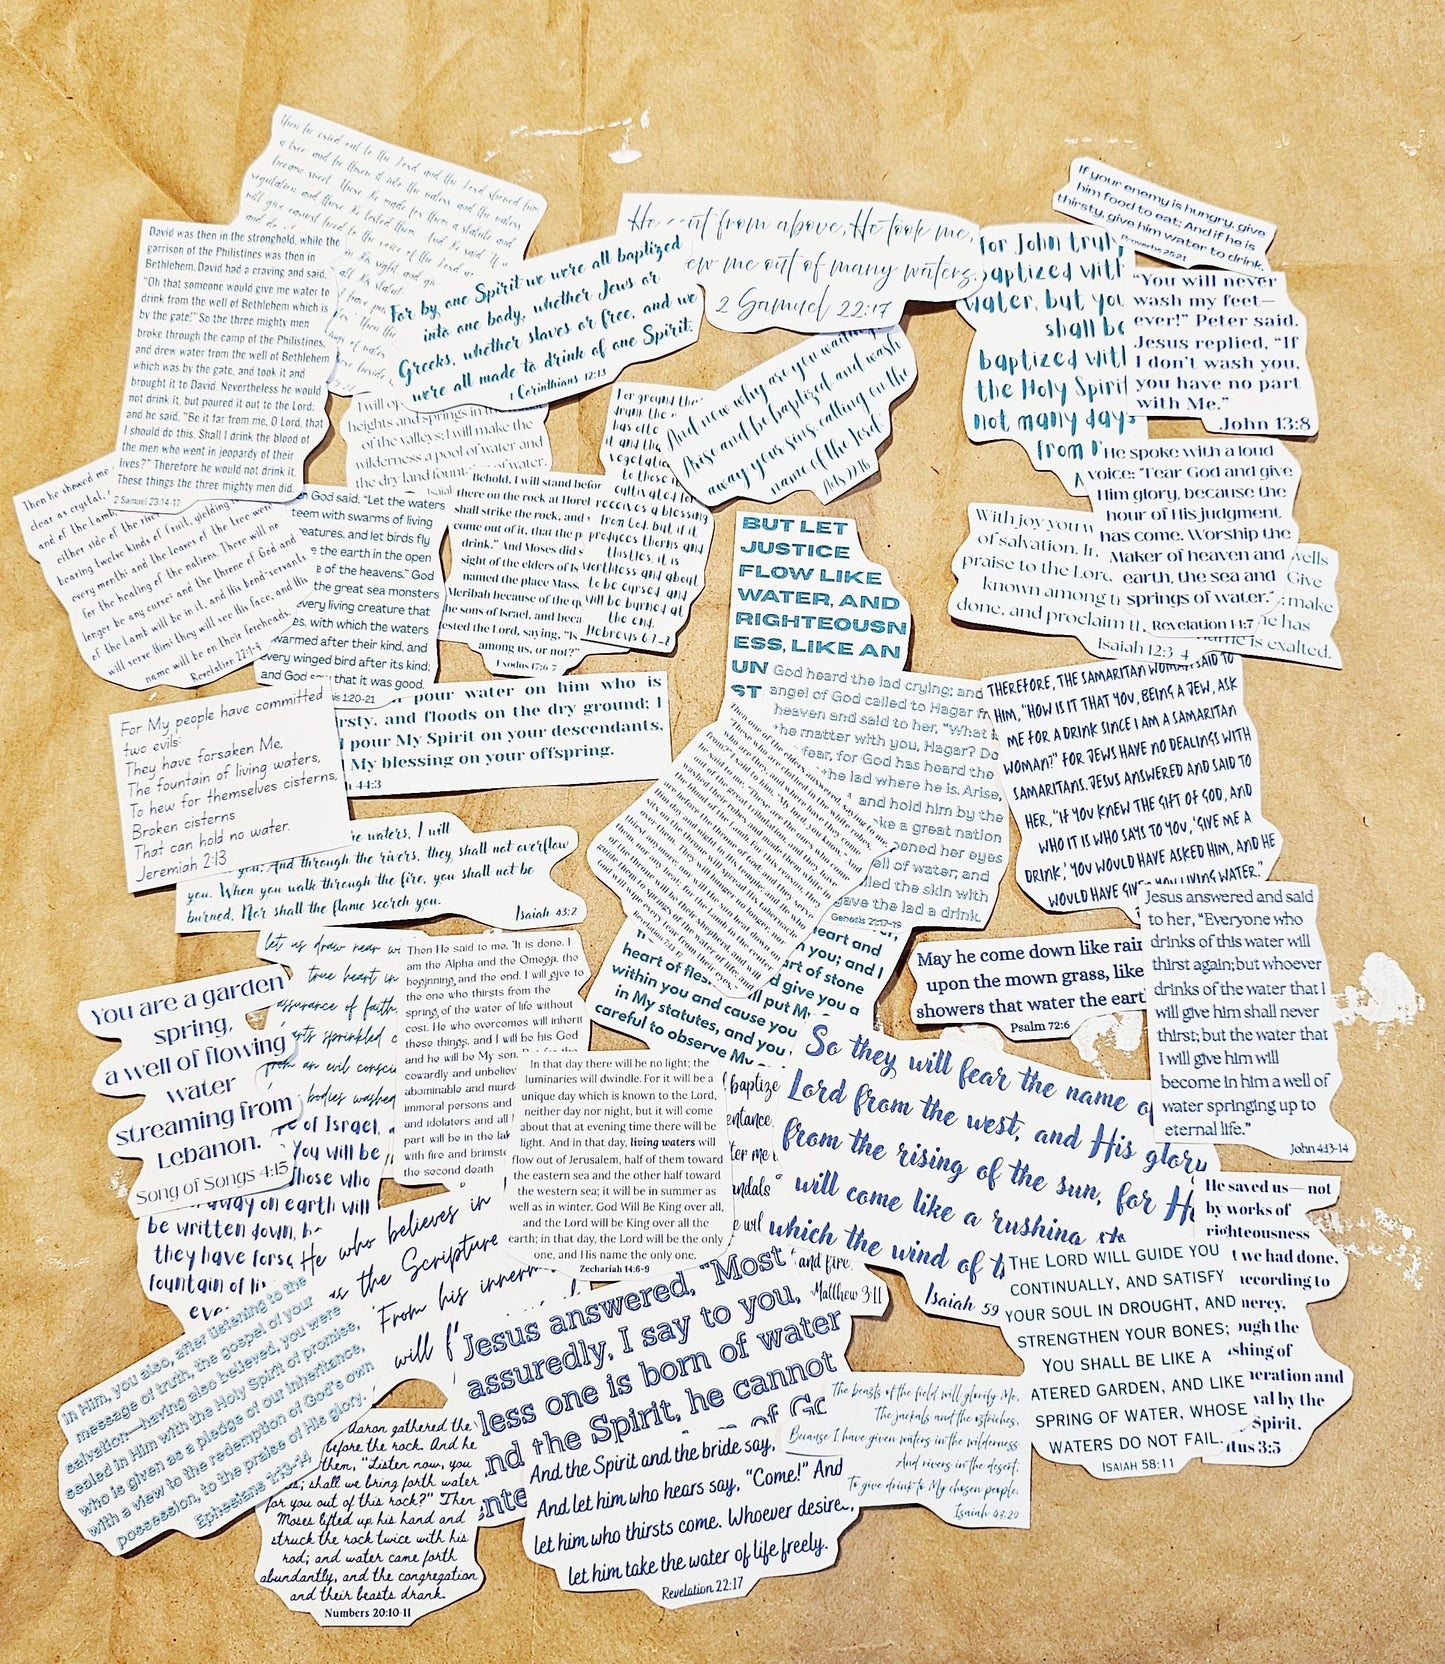 Then he cried out to the Lord and the Lord showed him
a tree and he threw it into the waters and the waters
became sweet. There He made for them a statute and
regulation and there He tested them. And He said, "If
will give earnest heed to the voice of the Lord
David was then in the stronghold, while the
garrison of the Philistines was then in
Bethlehem. David had a craving and said,
"Oh that someone would give me water to
drink from the well of Bethlehem which is
by the gate!" So the three mighty men
broke through the camp of the Philistines,
and drew water from the well of Bethlehem
which was by the gate, and took it and
brought it to David. Nevertheless he would
not drink it, but poured it out to the Lord;
and he said, "Be it far from me, O Lord, that
I should do this. Shall I drink the blood of
the men who went in jeopardy of their
lives?" Therefore he would not drink it.
These things the three mighty men did.
2 Samuel 23:14-17
For by one Spirit we were all baptized
into one body, whether Jews or
Greeks, whether slaves or free, and we
were all made to drink of one Spirit.
1 Corinthians 12:13
He sent from above, He took me,
ew me out of many waters.
2 Samuel 22:17
And now why are you waiting
Arise and be baptized, and wash
away your sins, calling on the
name of the Lord.
Acts 22:16
for John truly
baptized with
water, but you
shall be
baptized with
the Holy Spirit
not many days
from
If your enemy is hungry, give
him food to eat; And if he is
thirsty, give him water to drink.
Proverbs 25:21
"You will never
wash my feet—
ever!" Peter said.
Jesus replied, "If
I don't wash you,
you have no part
with Me."
John 13:8
He spoke with a loud
voice: "Fear God and give
Him glory, because the
hour of His judgment
has come. Worship the
Maker of heaven and
earth, the sea and
springs of water."
Revelation 14:7
With joy you w
of salvation. In
praise to the Lord,
known among t
done, and proclaim th
Isaiah 12:3-4
wells
Give
make
he has
name is exalted.
I will op
heights and springs in th
of the valleys; I will make the
wilderness a pool of water and
the dry land fountains of water.
Then he showed me
clear as crystal,
and of the Lamb
either side of the
bearing twelve kinds of fruit, yielding
every month; and the leaves of the tree were
for the healing of the nations. There will no
longer be any curse; and the throne of God and
of the Lamb will be in it, and His bond-servants
will serve Him; they will see His face, and His
name will be on their foreheads.
Revelation 22:1-4
n God said, "Let the waters
teem with swarms of living
eatures, and let birds fly
e the earth in the open
e of the heavens." God
the great sea monsters
every living creature that
es, with which the waters
warmed after their kind, and
every winged bird after its kind;
and God saw that it was good.
1:20-21
Behold, I will stand befor
there on the rock at Horeb
shall strike the rock, and
come out of it, that the p
drink." And Moses did s
sight of the elders of Is
named the place Mass
Meribah because of the qu
the sons of Israel, and beca
tested the Lord, saying, "Is
among us, or not?"
Exodus 17:6-7
For ground tha
drunk the
has ofte
it and th
vegetatio
to those
cultivated
receives a blessing
from God; but if it
produces thorns and
thistles, it is
worthless and about
to be cursed, and
will be burned at
the end.
Hebrews 6:7-8
BUT LET
JUSTICE
FLOW LIKE
WATER, AND
RIGHTEOUSN
ESS, LIKE AN
UN
ST
God heard the lad crying; and
angel of God called to Hagar fr
heaven and said to her, "What i
he matter with you, Hagar? Do
fear, for God has heard the
the lad where he is. Arise,
and hold him by the
ke a great nation
pened her eyes
ell of water; and
lled the skin with
gave the lad a drink.
Genesis 21:17-19
THEREFORE, THE SAMARITAN WOMAN SAID TO
HIM, "HOW IS IT THAT YOU, BEING A JEW, ASK
ME FOR A DRINK SINCE I AM A SAMARITAN
WOMAN?" FOR JEWS HAVE NO DEALINGS WITH
SAMARITANS. JESUS ANSWERED AND SAID TO
HER, "IF YOU KNEW THE GIFT OF GOD, AND
WHO IT IS WHO SAYS TO YOU, 'GIVE ME A
DRINK,' YOU WOULD HAVE ASKED HIM, AND HE
WOULD HAVE GIVEN YOU LIVING WATER."
pour water on him who is
rsty, and floods on the dry ground; I
pour My Spirit on your descendants,
My blessing on your offspring.
44:3
For My people have committed
two evils:
They have forsaken Me,
The fountain of living waters,
To hew for themselves cisterns,
Broken cisterns
That can hold no water.
Jeremiah 2:13
he waters, I will
you; And through the rivers, they shall not overflow
you. When you walk through the fire, you shall not be
burned, Nor shall the flame scorch you.
Isaiah 43:2
Then one of the elders answered, saying to
who are clothed in the white robes,
who are they, and where have they come
from?" I said to him, "My lord, you know." And
he said to me, "These are the ones who come
out of the great tribulation, and they have
washed their robes and made them white in
the blood of the Lamb. For this reason, they
are before the throne of God; and they serve
Him day and night in His temple; and He who
sits on the throne will spread His tabernacle
over them. They will hunger no longer, nor
thirst anymore; nor will the sun beat down on
them, nor any heat; for the Lamb in the center
of the throne will be their shepherd, and will
guide them to springs of the water of life; and
God will wipe every tear from their eyes."
Revelation 7:13-17
heart and
n you; and I
art of stone
heart of fles
d give you a
ll put My
within you and cause you
in My statutes, and you
careful to observe My
May he come down like rain
upon the mown grass, like
showers that water the eart
Psalm 72:6
Jesus answered and said
to her, "Everyone who
drinks of this water will
thirst again; but whoever
drinks of the water that I
will give him shall never
thirst; but the water that
I will give him will
become in him a well of
water springing up to
eternal life."
John 4:13-14
let us draw near w
true heart in
assurance of faith,
rts sprinkled c
from an evil consci
bodies washed
You are a garden
spring,
a well of flowing
water
streaming from
Lebanon.
Song of Songs 4:15
Then He said to me, "It is done. I
am the Alpha and the Omega, the
beginning, and the end. I will give to
the one who thirsts from the
spring of the water of life without
cost. He who overcomes will inherit
these things, and I will be his God
and he will be My son.
cowardly and unbeliev
abominable and murd
immoral persons and
and idolaters and all
part will be in the lak
with fire and brimsto
the second death
In that day there will be no light; the
luminaries will dwindle. For it will be a
unique day which is known to the Lord,
neither day nor night, but it will come
about that at evening time there will be
light. And in that day, living waters will
flow out of Jerusalem, half of them toward
the eastern sea and the other half toward
the western sea; it will be in summer as
well as in winter. God Will Be King over all,
and the Lord will be King over all the
earth; in that day, the Lord will be the only
one, and His name the only one.
Zechariah 14:6-9
baptize
entance,
ter me
andals
e wil
and fire.
Matthew 3:11
So they will fear the name o
Lord from the west, and His glory
from the rising of the sun, for H
will come like a rushing st
which the wind of t
Isaiah 59
of Israel,
You will be
hose who
away on earth will
be written down, b
they have forsa
fountain of li
eve
He who believes in
as the Scripture
From his innerm
will f
He saved us—not
by works of
righteousness
t we had done,
according to
mercy,
ough the
shing of
eration and
val by the
Spirit.
itus 3:5
THE LORD WILL GUIDE YOU
CONTINUALLY, AND SATISFY
YOUR SOUL IN DROUGHT, AND
STRENGTHEN YOUR BONES;
YOU SHALL BE LIKE A
ATERED GARDEN, AND LIKE
SPRING OF WATER, WHOSE
WATERS DO NOT FAIL.
ISAIAH 58:11
In Him, you also, after listening to the
message of truth, the gospel of your
salvation—having also believed, you were
sealed in Him with the Holy Spirit of promise,
who is given as a pledge of our inheritance,
with a view to the redemption of God's own
possession, to the praise of His glory.
Ephesians 1:13-14
Jesus answered, "Most
assuredly, I say to you,
less one is born of water
nd the Spirit, he cannot
nte
of Go
The beasts of the field will glorify Me,
The jackals and the ostriches,
Because I have given waters in the wilderness
And rivers in the desert,
To give drink to My chosen people.
Isaiah 43:20
Aaron gathered the
before the rock. And he
them, "Listen now, you
s; shall we bring forth water
for you out of this rock?" Then
Moses lifted up his hand and
struck the rock twice with his
rod; and water came forth
abundantly, and the congregation
and their beasts drank.
Numbers 20:10-11
And the Spirit and the bride say,
And let him who hears say, "Come!" And
let him who thirsts come. Whoever desires,
let him take the water of life freely.
Revelation 22:17